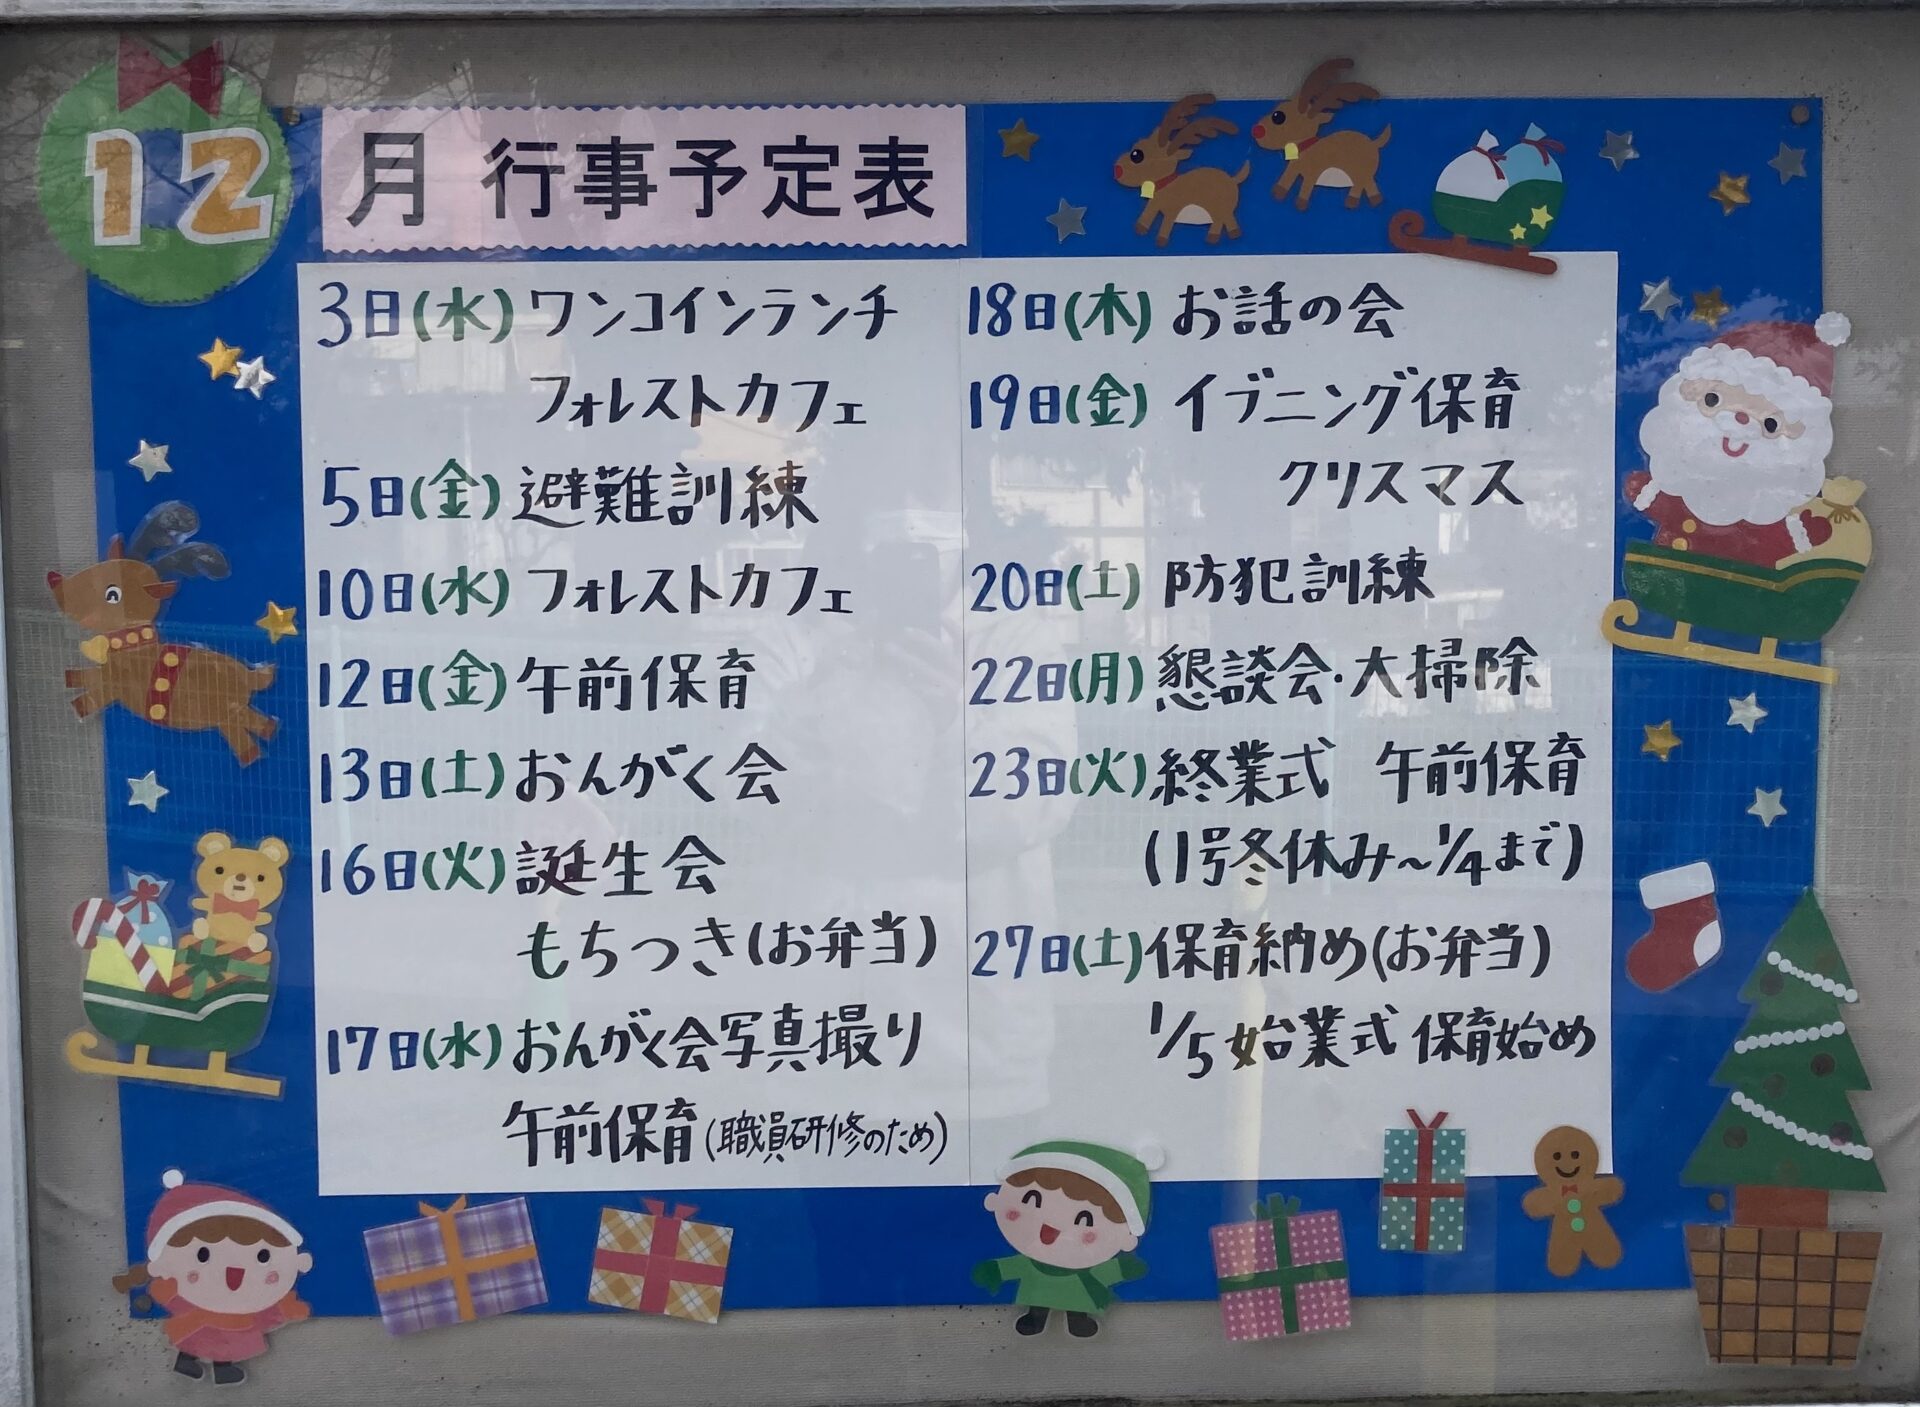 12月 行事予定表
3日(水) ワンコインランチ
フォレストカフェ
5日(金) 避難訓練
10日(水) フォレストカフェ
12日(金) 午前保育
13日(土) おんがく会
16日(火) 誕生会
もちつき(お弁当)
17日(水) おんがく会写真撮り
午前保育(職員研修のため)
18日(木) お話の会
19日(金) イブニング保育
クリスマス
20日(土) 防犯訓練
22日(月) 懇談会・大掃除
23日(火) 終業式 午前保育
(1号冬休み〜1/4まで)
27日(土) 保育納め(お弁当)
1/5 始業式 保育始め